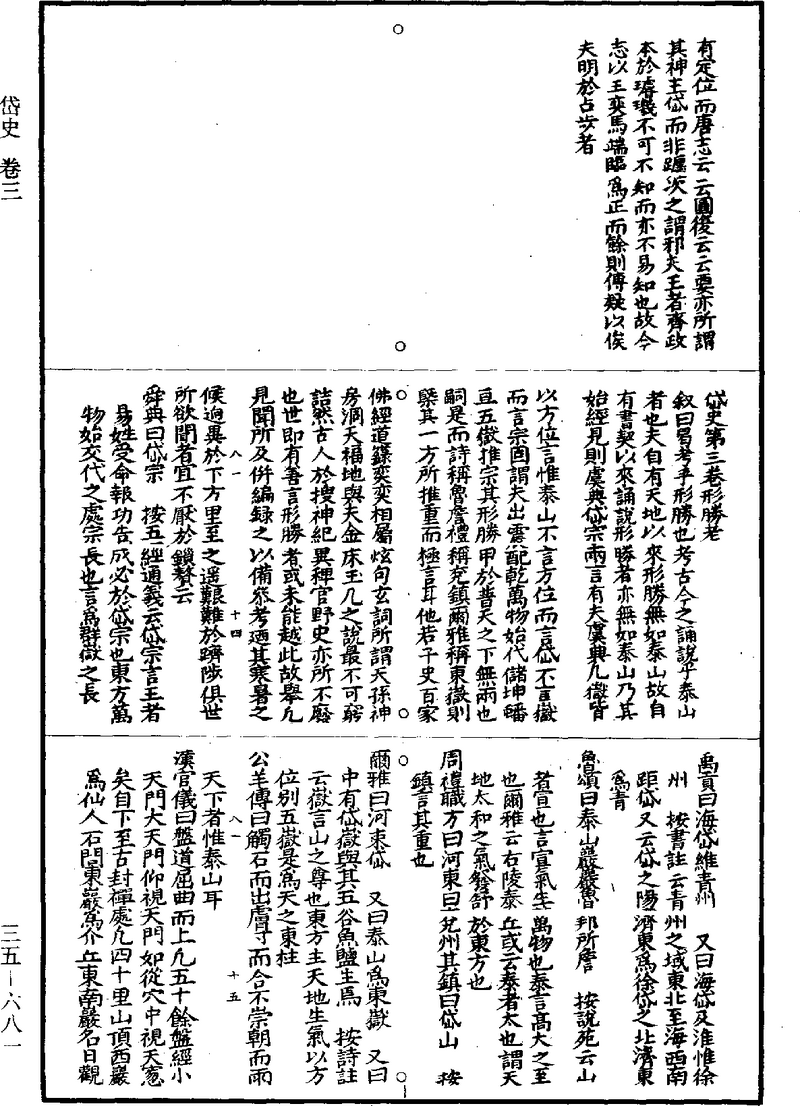 岱史　卷三
有定位而唐志云云圖後云云要亦所謂
其神主岱而非躔次之謂邪夫王者齊政
本於璿璣不可不知而亦不易知也故今
志以王奕馬端臨爲正而餘則傳疑以俟
夫明於占步者
岱史第三卷形勝考
敘曰曷考乎形勝也考古今之誦說乎泰山
者也夫自有天地以來形勝無如泰山故自
有書契以來誦說形勝者亦無如泰山乃其
始經見則虞典岱宗兩言有夫虞典九嶽皆
以方位言惟泰山不言方位而言岱不言嶽
而言宗固謂夫出震配乾萬物始代儲坤蟠
亘五嶽推宗其形勝甲於普天之下無兩也
嗣是而詩稱魯詹禮稱兗鎮爾雅稱東嶽則
槩其一方所推重而極言耳他若子史百家
佛經道籙奕奕相屬炫句玄詞所謂天孫神
房洞天福地與夫金床玉几之說最不可窮
詰然古人於搜神紀異稗官野史亦所不廢
也世即有善言形勝者或未能越此故舉凡
見聞所及併編錄之以備參考廼其寒暑之
八一　十四
候逈異於下方里至之遥艱難於躋陟俱世
所欲聞者宜不厭於鎖贅云
舜典曰岱宗　按五經通義云岱宗言王者
易姓受命報功告成必於岱宗也東方萬
物始交代之處宗長也言爲群嶽之長
禹貢曰海岱維青州　又曰海岱及淮惟徐
州　按書註云青州之域東北至海西南
距岱又云岱之陽濟東爲徐岱之北濟東
爲青
魯頌曰泰山巖巖魯邦所詹　按說苑云山
者宣也言宣氣生萬物也泰言高大之至
也爾雅云右陵泰丘或云泰者太也謂天
地太和之氣發舒於東方也
周禮職方曰河東曰兗州其鎮曰岱山　按
鎮言其重也
爾雅曰河東岱　又曰泰山爲東嶽　又曰
中有岱嶽與其五谷魚鹽生焉　按詩註
云嶽言山之尊也東方主天地生氣以方
位別五嶽是爲天之東柱
公羊傳曰觸石而出膚寸而合不崇朝而雨
八一　十五
天下者惟泰山耳
漢官儀曰盤道屈曲而上凡五十餘盤經小
天門大天門仰視天門如從穴中視天窻
矣自下至古封禪處凡四十里山頂西巖
爲仙人石閭東巖爲介丘東南巖名日觀
三五—六八一